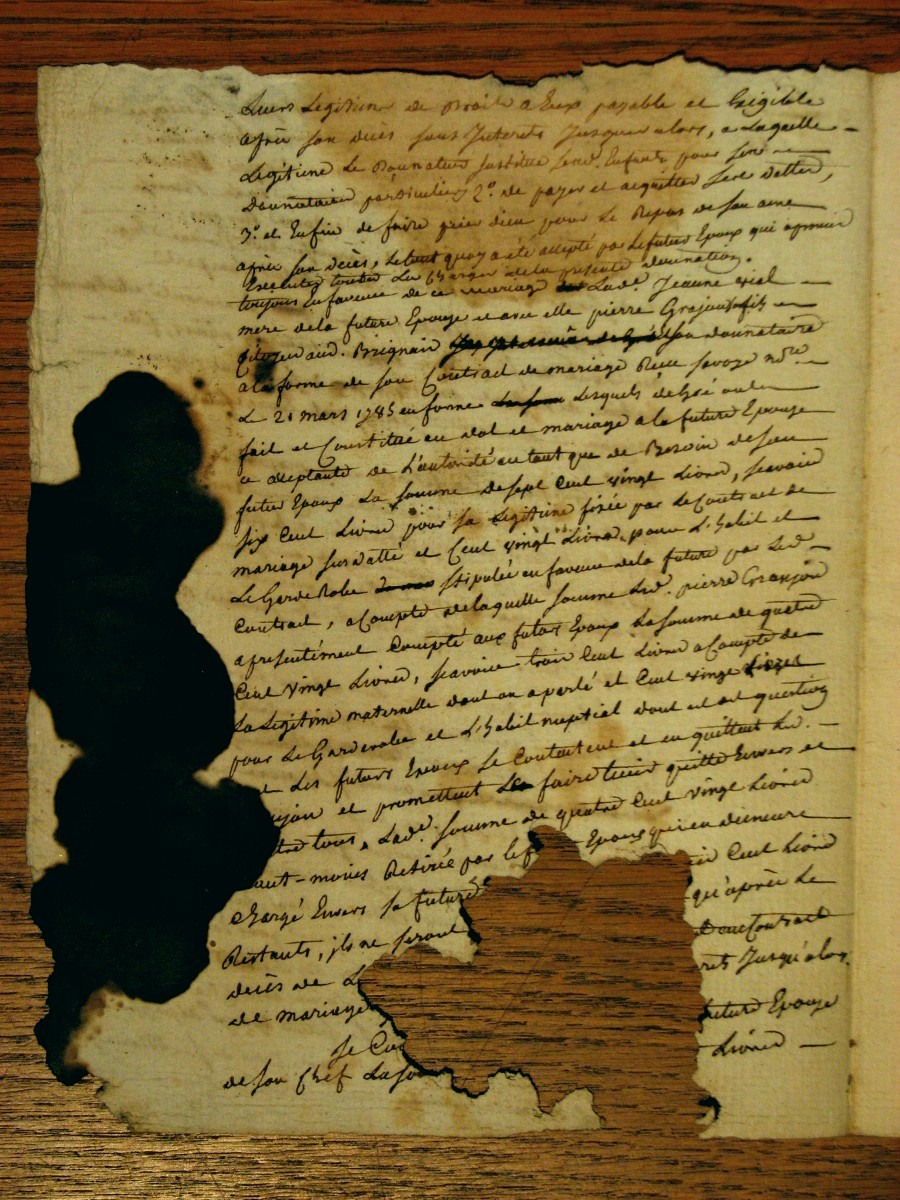 Leurs Legitime de Droit a Eux payable et Exigible
après son décès sans Interets Jusques alors, a Laquelle
Legitime Le Donnateur Institue Sesd. Enfants pour ses
Donnataires particuliers 2.º de payer et acquitter ses dettes,
3.º et Enfin de faire prier dieu pour Le Repos de Son ame
après son décès, Le tout quoy a été accepté par Le futur Epoux qui a promis
Executer toutes Les Charges de La presente donnation.
toujours En faveur de ce mariage Lad.e Jeanne
mere de la future Epouse et avec elle pierre Grajon fils
Citoyen aud. Brignais son donnataire
a la forme de son Contrat de mariage Reçu Savoye n.re
Le 21 mars 1785 en forme Lesquels de Gré ont
fait et Constitué en dot et mariage a la future Epouse
ce acceptante de L'autorité en tant que de Besoin de son
futur Epoux La somme de sept Cent vingt Livres, scavoir
six Cent Livres pour sa Legitime fixée par le Contrat de
mariage susdatté et Cent vingt Livres pour L'habit et
Le Garderobe stipulée en faveur de la future par Led.
Contrat, a Compte de laquelle somme Led. pierre Granjon
a presentement Compté aux futurs Epoux La somme de quatre
Cent vingt Livres, scavoir trois Cent Livres a Compte de
La Legitime maternelle dont on a parlé et Cent vingt Livres
pour Le Garderobe et L'habit nuptial dont il est question
Les futurs Epoux Se Contentent et en quittent Led.
jon et promettent faire tenir quitte Envers et
tre tous, Lad.e somme de quatre Cent vingt Livres
ant-moins Retirée par le f Epoux qui en demeure
Chargé Envers sa future Cent Livres
Restants, ils ne seront qu'après Le
décès de L Contrat
de mariage rets Jusqu'alors.
future Epouse
se Co Livres
de son Chef La so